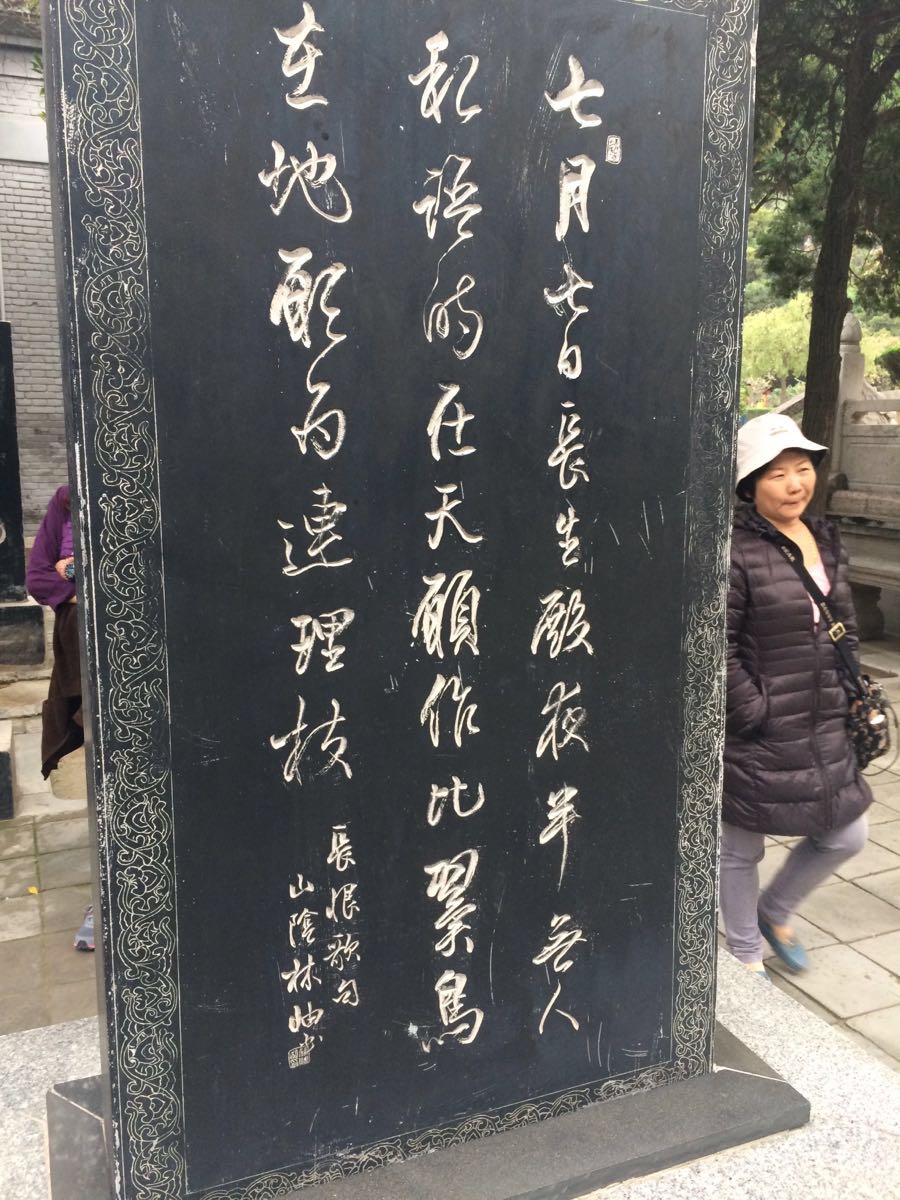 七月七日長生殿夜半無人
私語時在天願作比翼鳥
在地願為連理枝
長恨歌句
山陰林岫书